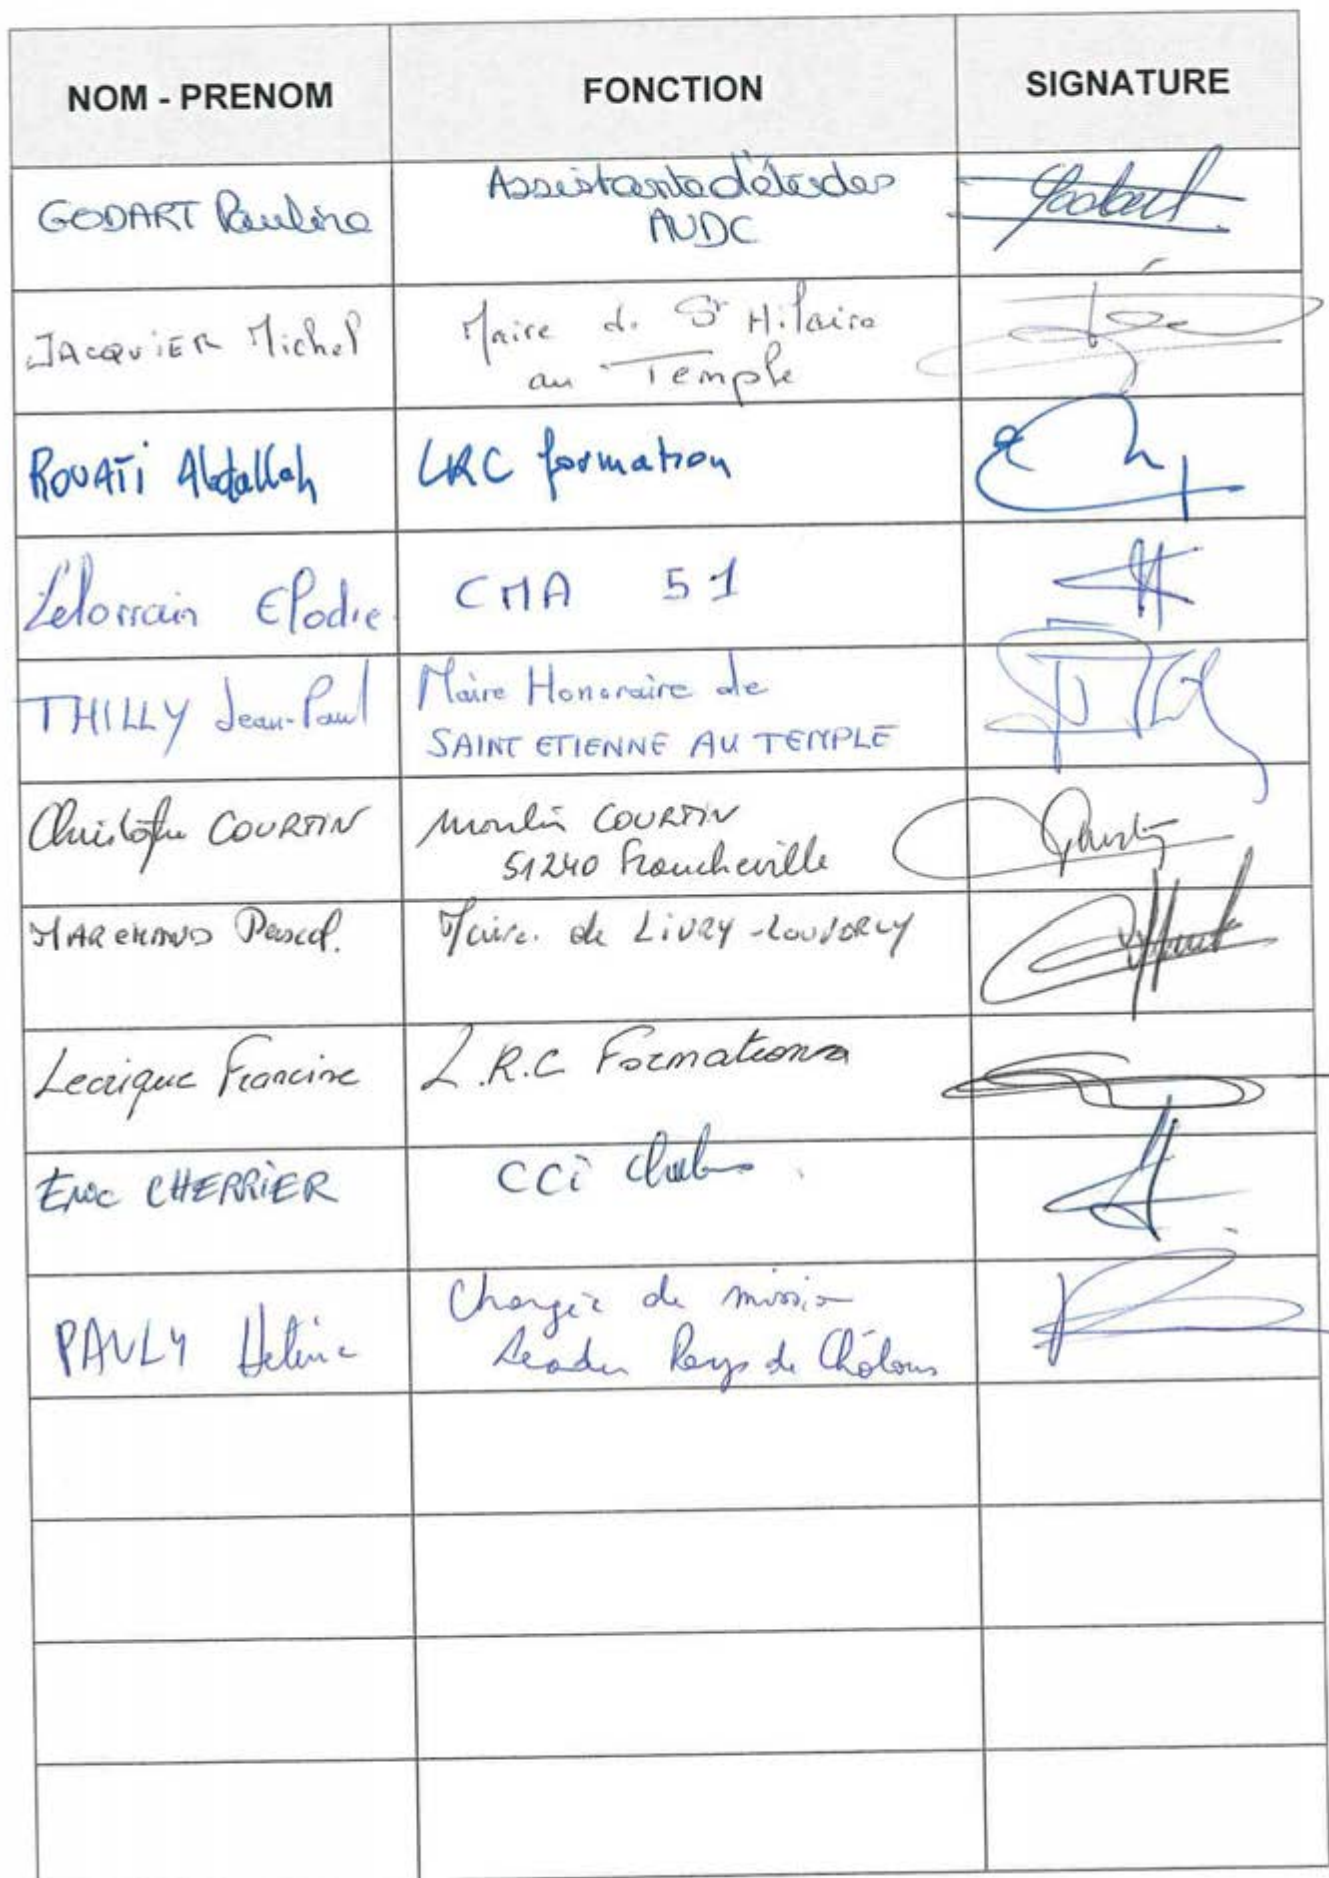 NOM - PRENOM FONCTION SIGNATURE
GODART Pauline Assistante d'études
AUDC
JACQUIER Michel Maire de St Hilaire
au Temple
ROUATI Abdallah LRC formation
Lelorrain Elodie CMA 51
THILLY Jean-Paul Maire Honoraire de
SAINT ETIENNE AU TEMPLE
Christophe COURTIN Moulin COURTIN
51240 Francheville
MARCHAND Pascal. Maire de LIVRY-LOUVERCY
Lecrique Francine L.R.C Formations
Eric CHERRIER CCi
PAULY Hélène Chargée de mission
Leader Pays de Châlons